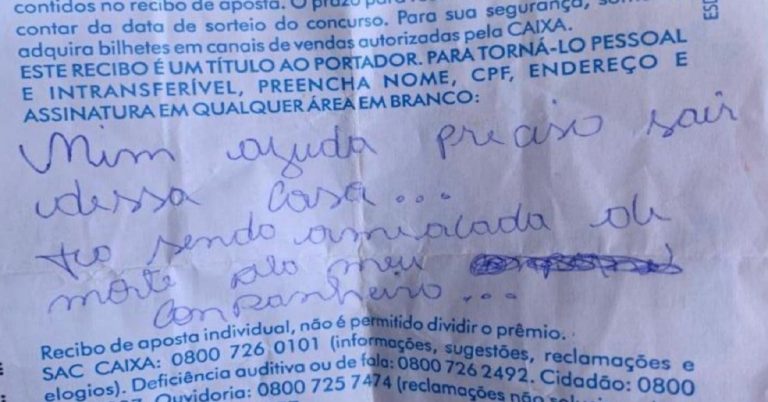 contidos no recibo de aposta. O prazo para
contar da data de sorteio do concurso. Para sua segurança, som
adquira bilhetes em canais de vendas autorizadas pela CAIXA.
ESTE RECIBO É UM TÍTULO AO PORTADOR. PARA TORNÁ-LO PESSOAL
E INTRANSFERÍVEL, PREENCHA NOME, CPF, ENDEREÇO E
ASSINATURA EM QUALQUER ÁREA EM BRANCO:
Mim ajuda preciso sair
dessa casa...
to sendo amiaçada de
morte pelo meu
companheiro...
Recibo de aposta individual, não é permitido dividir o prêmio.
SAC CAIXA: 0800 726 0101 (informações, sugestões, reclamações e
elogios). Deficiência auditiva ou de fala: 0800 726 2492. Cidadão: 0800
Ouvidoria: 0800 725 7474 (reclamações não